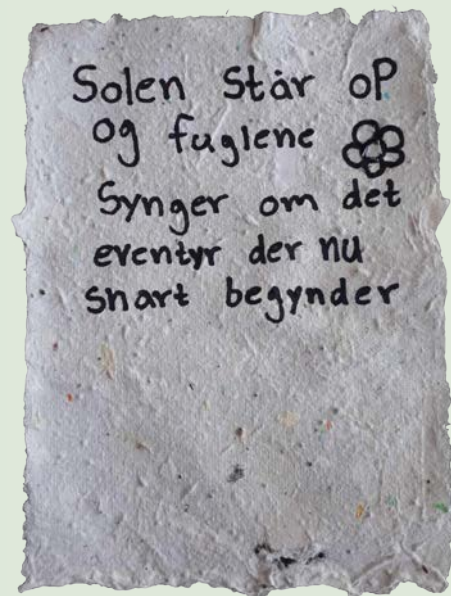 Solen Står oP
og fuglene
Synger om det
eventyr der nu
snart begynder